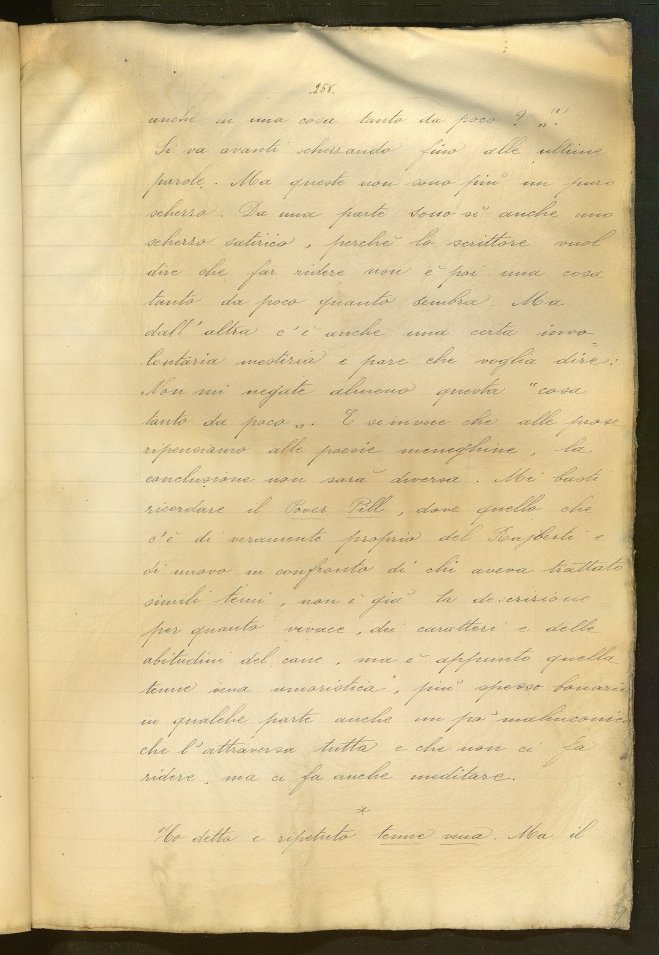 .258.
anche in una cosa tanto da poco? „ (1)
Si va avanti scherzando fino alle ultime
parole. Ma queste non sono più un puro
scherzo. Da una parte sono sì anche uno
scherzo satirico, perchè lo scrittore vuol
dire che far ridere non è poi una cosa
tanto da poco quanto sembra. Ma
dall'altra c'è anche una certa invo-
lontaria mestizia e pare che voglia dire:
Non mi negate almeno questa "cosa
tanto da poco„. E se invece che alle prose
ripensiamo alle poesie meneghine, la
conclusione non sarà diversa. Mi basti
ricordare il Pover Pill, dove quello che
c'è di veramente proprio del Rajberti e
di nuovo in confronto di chi aveva trattato
simili temi, non è già la descrizione
per quanto vivace, dei caratteri e delle
abitudini del cane, ma è appunto quella
tenue vena umoristica, più spesso bonaria
in qualche parte anche un po' malinconica
che l'attraversa tutta e che non ci fa
ridere, ma ci fa anche meditare.
*
Ho detto e ripetuto tenue vena. Ma il